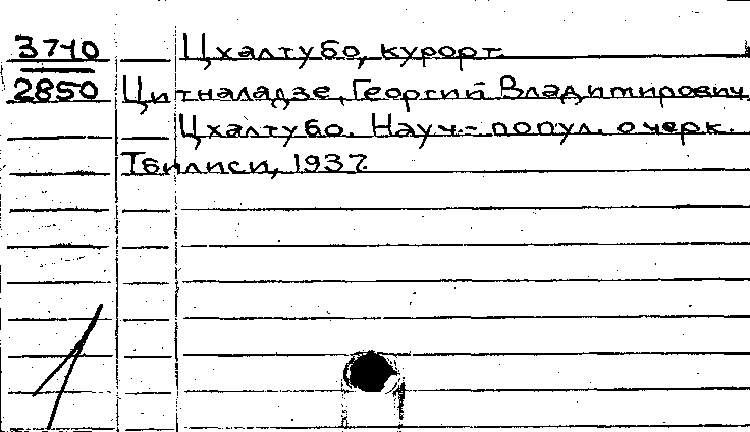 3740 Цхалтубо, курорт.
2850 Цитналадзе, Георгий Владимирович
Цхалтубо. Науч.-попул. очерк.
Тбилиси, 1937.